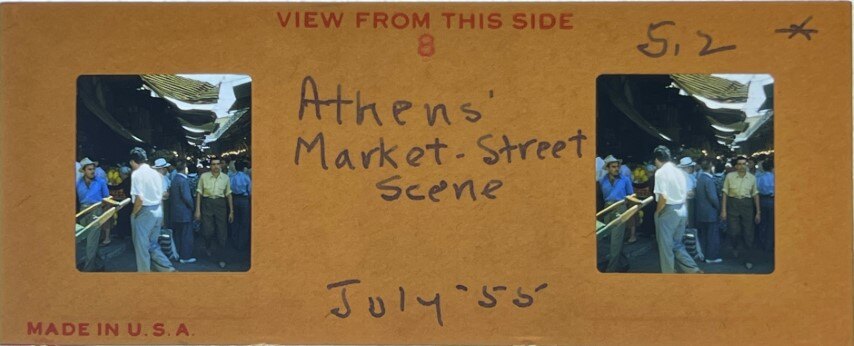 VIEW FROM THIS SIDE
8
5.2 *
Athens'
Market-Street
Scene
July '55
MADE IN U.S.A.